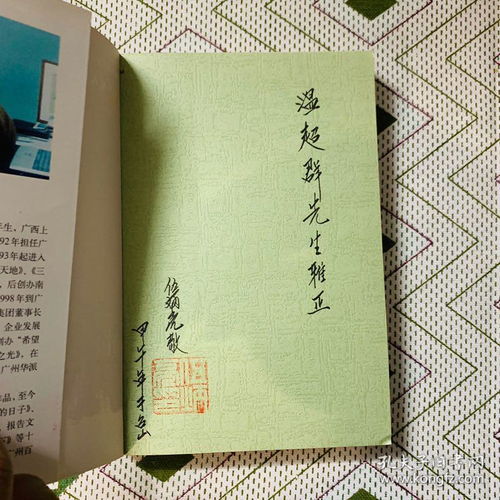 年生，广西上
92年担任广
93年起进入
天地》、《三
，后创办南
998年到广
集团董事长
企业发展
创办“希望
之光》，在
广州华派
作品，至今
的日子》、
报告文
》等十
广州百
温超群先生雅正
敬
甲午年于
孔夫子旧书网
www.kongfz.com